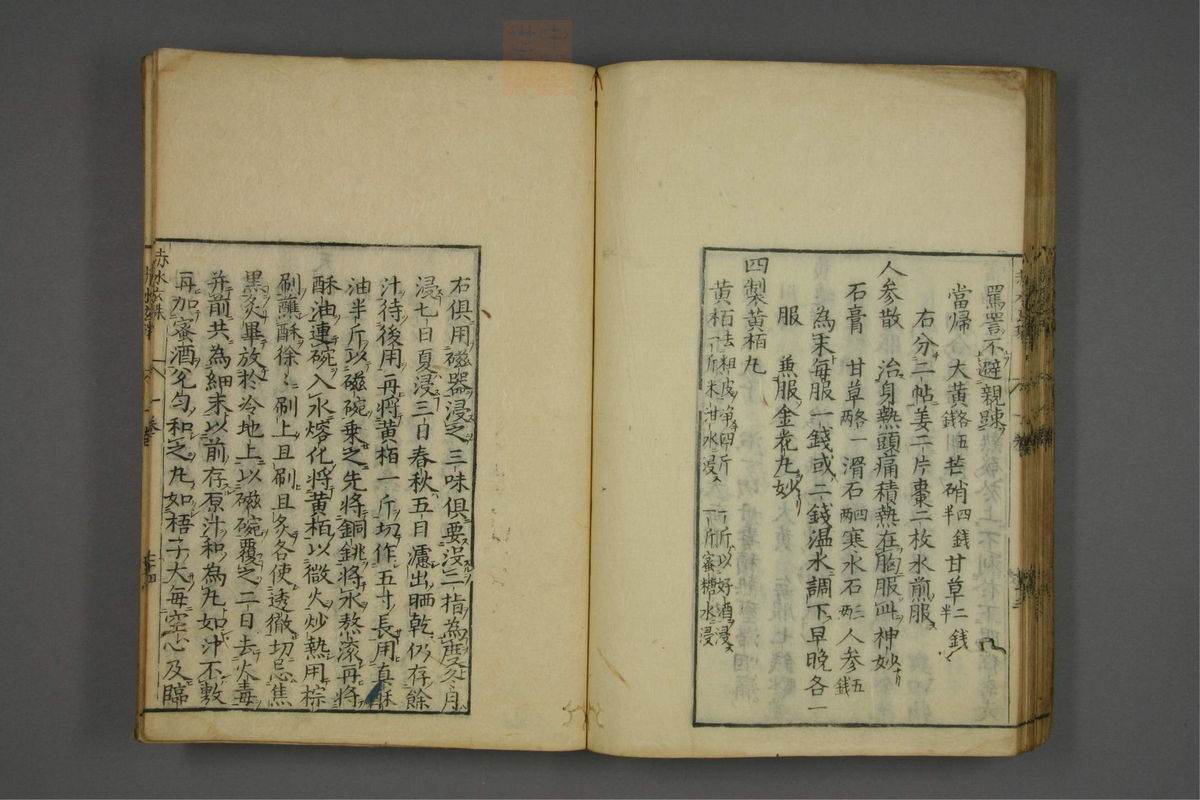 罵詈不避親踈
當帰 大黄各五錢 芒硝四錢半 甘草二錢半
右分二帖姜二片棗二枚水煎服
人参散 治身熱頭痛積熱在胸服此神妙
石膏 甘草各一両 滑石四両 寒水石二両 人参五錢
為末毎服一錢或二錢温水調下早晚各一
服 兼服金花丸妙
四製黄栢丸
黄栢去粗皮淨四斤 一斤以好酒浸 一斤米泔水浸 一斤蜜糖水浸
右俱用磁器浸之三味俱要没二指為度冬月
浸七日夏浸三日春秋五日漉出晒乾仍存餘
汁待後用再将黄栢一斤切作五寸長用真酥
油半斤以磁碗乗之先将銅銚将水熬滾再将
酥油連碗入水熔化将黄栢以微火炒熱用棕
刷蘸酥徐々刷上且刷且炙各使透徹切忌焦
黒炙畢放於冷地上以磁碗覆之二日去火毒
并前共為細末以前存原汁和為丸如汁不敷
再加蜜酒兌匀和之丸如梧子大毎空心及臨
赤水玄珠